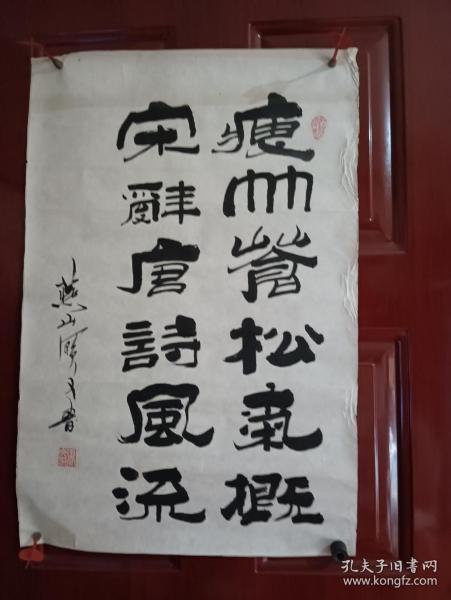 瘦竹蒼松氣概
宋辭唐詩風流
燕山書
孔夫子旧书网
www.kongfz.com